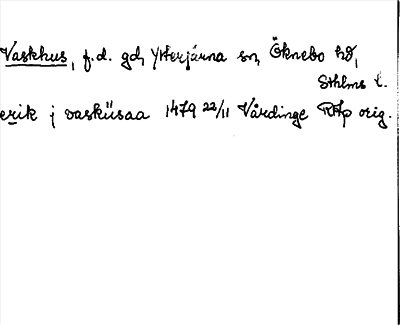 Vaskhus, f.d. gd, Ytterjärna sn, Öknebo hd,
Sthlms l.
erik j vasküsaa 1479 22/11 Vårdinge RAp orig.